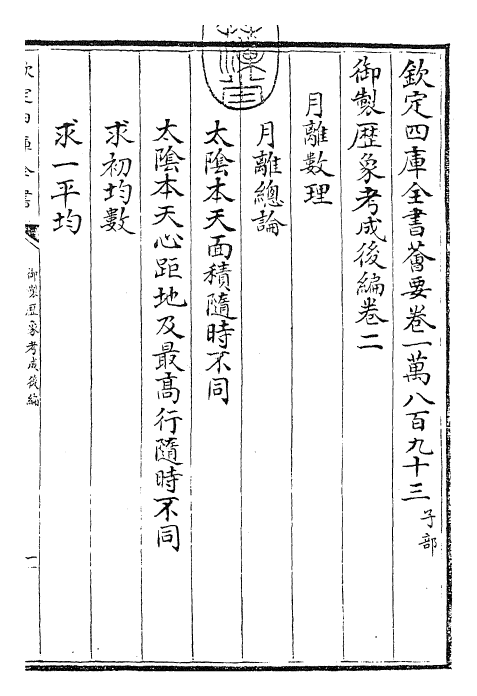 欽定四庫全書薈要卷一萬八百九十三 子部
御製歴象考成後編卷二
月離數理
月離總論
太陰本天面積隨時不同
太陰本天心距地及最髙行隨時不同
求初均數
求一平均
欽定四庫全書
御製歴象考成後編
一